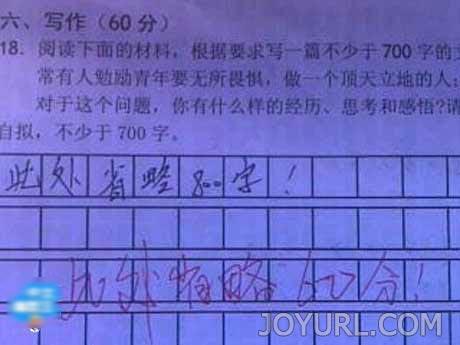 六、写作（60分）
18. 阅读下面的材料，根据要求写一篇不少于700字的文
常有人勉励青年要无所畏惧，做一个顶天立地的人；
对于这个问题，你有什么样的经历、思考和感悟?请
自拟，不少于700字。
此处省略800字！
此处省略60分！
JOYURL.COM